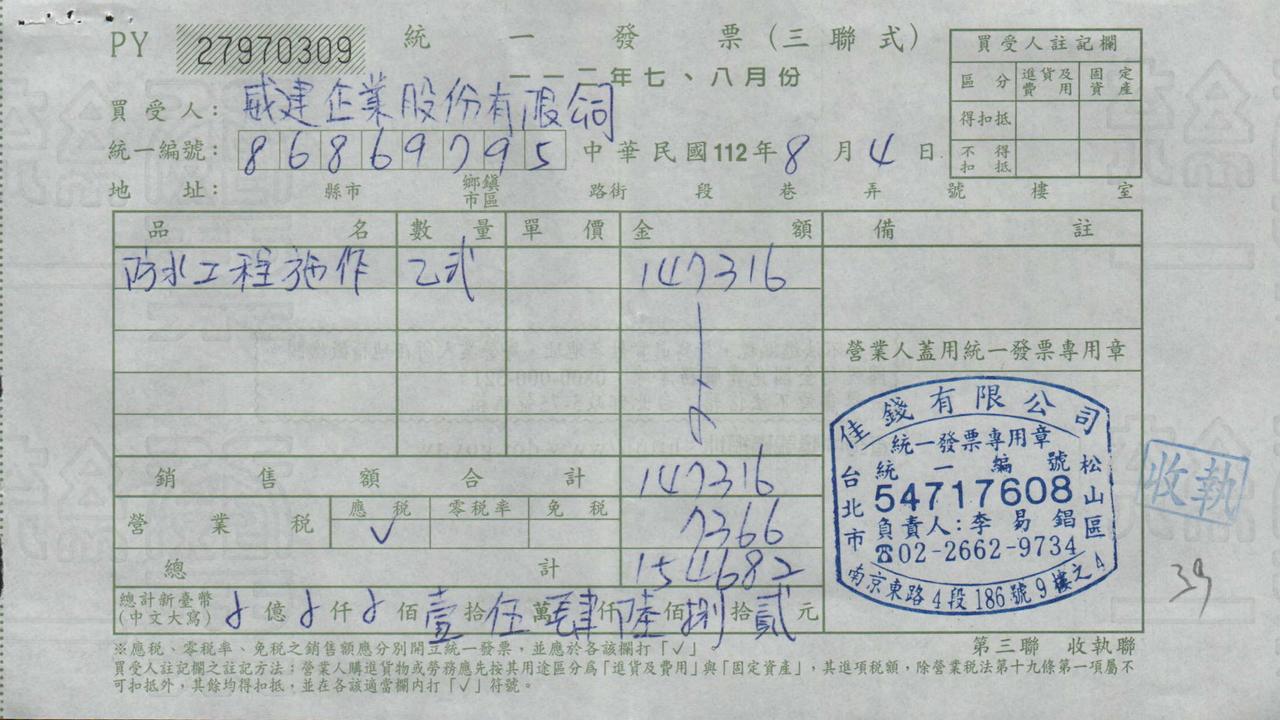 PY 27970309 統一發票(三聯式)
一一二年七、八月份
買受人註記欄
區分 進貨及費用 固定資產
得扣抵
不得扣抵
買受人: 威建企業股份有限公司
統一編號: 86869795 中華民國112年8月4日
地址: 縣市 鄉鎮市區 路街 段 巷 弄 號 樓 室
品名 數量 單價 金額 備註
防水工程施作 乙式 147316
營業人蓋用統一發票專用章
銷售額合計 147316
營業稅 應稅 ✓ 零稅率 免稅 7366
總計 154682
總計新臺幣(中文大寫) 億 仟 佰壹拾伍萬肆仟陸佰捌拾貳元
佳錢有限公司
統一發票專用章
統一編號
54717608
負責人:李易錩
☎02-2662-9734
台北市松山區
南京東路4段186號9樓之4
收執
39
第三聯 收執聯
※應稅、零稅率、免稅之銷售額應分別開立統一發票,並應於各該欄打「✓」。
買受人註記欄之註記方法:營業人購進貨物或勞務應先按其用途區分為「進貨及費用」與「固定資產」,其進項稅額,除營業稅法第十九條第一項屬不
可扣抵外,其餘均得扣抵,並在各該適當欄內打「✓」符號。